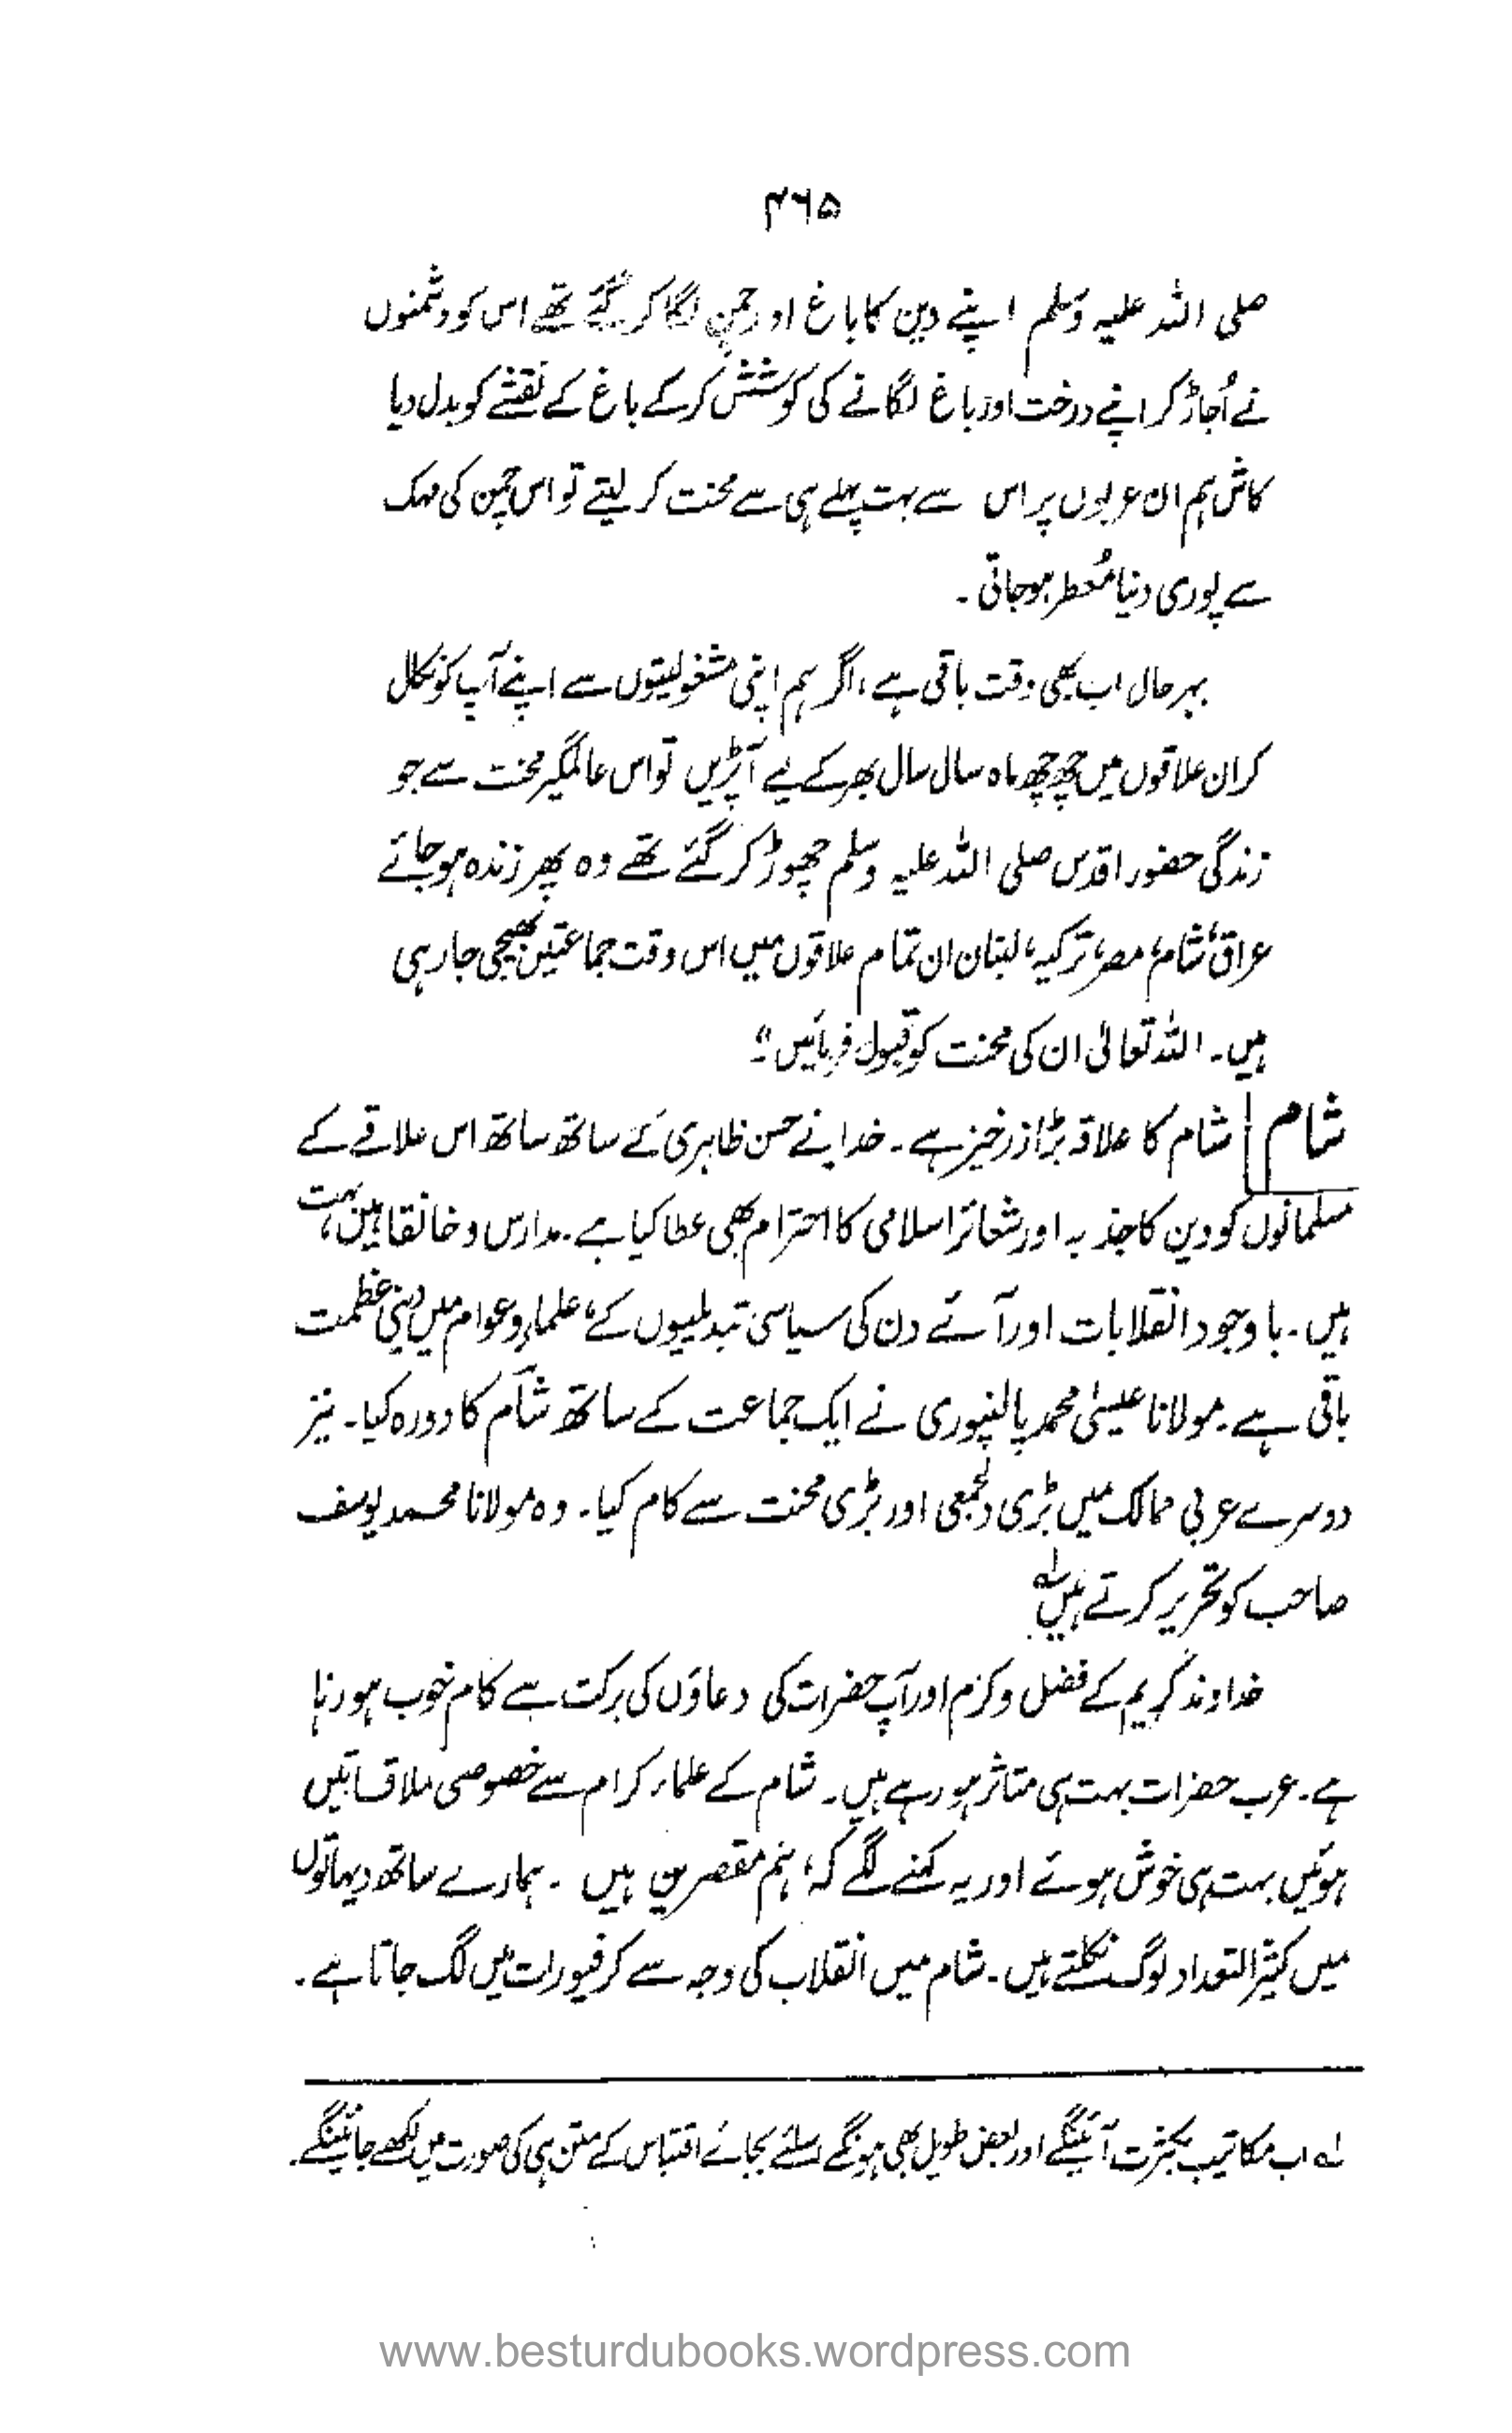 ۴۶۵
صلی اللہ علیہ وسلم اپنے دین کا باغ اور چمن لگا کر گئے تھے اس کو دشمنوں
نے اُجاڑ کر اپنے درخت اور باغ لگانے کی کوشش کر کے باغ کے نقشے کو بدل دیا
کاش ہم ان عربوں پر اس سے بہت پہلے ہی سے محنت کر لیتے تو اس چمن کی مہک
سے پوری دنیا مُعطر ہو جاتی۔
بہر حال اب بھی وقت باقی ہے، اگر ہم اپنی مشغولیتوں سے اپنے آپ کو نکال
کر ان علاقوں میں چھ چھ ماہ سال سال بھر کے لیے آپڑیں تو اس عالمگیر محنت سے جو
زندگی حضور اقدس صلی اللہ علیہ وسلم چھوڑ کر گئے تھے وہ پھر زندہ ہو جائے
عراق، شام، مصر، ترکیہ، لبنان ان تمام علاقوں میں اس وقت جماعتیں بھیجی جا رہی
ہیں۔ اللہ تعالیٰ ان کی محنت کو قبول فرمائیں۔"
شام شام کا علاقہ بڑا زرخیز ہے۔ خدا نے حسن ظاہری کے ساتھ ساتھ اس علاقے کے
مسلمانوں کو دین کا جذبہ اور شعائر اسلامی کا احترام بھی عطا کیا ہے۔ مدارس و خانقاہیں بہت
ہیں۔ باوجود انقلابات اور آئے دن کی سیاسی تبدیلیوں کے، علماء و عوام میں دینی عظمت
باقی ہے۔ مولانا عیسیٰ محمد پالنپوری نے ایک جماعت کے ساتھ شام کا دورہ کیا۔ نیز
دوسرے عربی ممالک میں بڑی دلجمعی اور بڑی محنت سے کام کیا۔ وہ مولانا محمد یوسف
صاحب کو تحریر کرتے ہیں ؎۱
خداوند کریم کے فضل و کرم اور آپ حضرات کی دعاؤں کی برکت سے کام خوب ہو رہا
ہے۔ عرب حضرات بہت ہی متاثر ہو رہے ہیں۔ شام کے علماء کرام سے خصوصی ملاقاتیں
ہوئیں بہت ہی خوش ہوئے اور یہ کہنے لگے کہ، ہم مقصرین ہیں۔ ہمارے ساتھ دیہاتوں
میں کثیر التعداد لوگ نکلتے ہیں۔ شام میں انقلاب کی وجہ سے کرفیو رات میں لگ جاتا ہے۔
؎۱ اب مکاتیب بکثرت آئینگے اور بعض طویل بھی ہونگے اسلئے بجائے اقتباس کے متن ہی کی صورت میں لکھے جائینگے۔
www.besturdubooks.wordpress.com